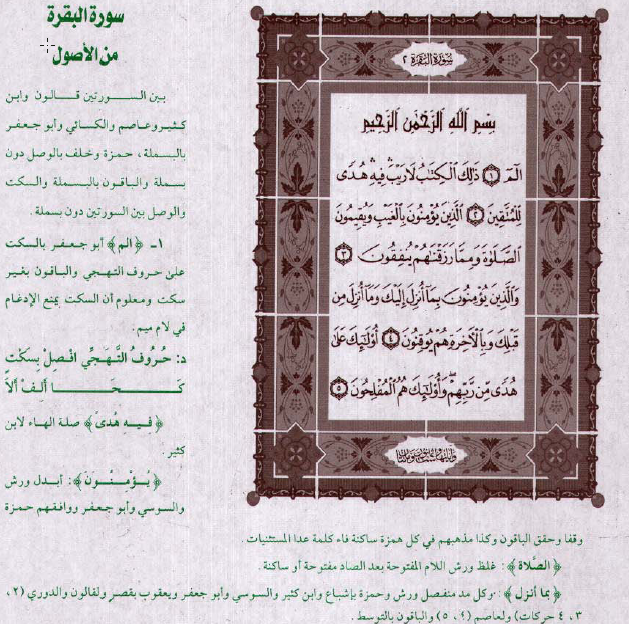 سورة البقرة
من الأصول
بين السورتين قالون وابن
كثير وعاصم والكسائي وأبو جعفر
بالبسملة، حمزة وخلف بالوصل دون
بسملة والباقون بالبسملة والسكت
والوصل بين السورتين دون بسملة.
١ـ ﴿الم﴾ أبو جعفر بالسكت
على حروف التهجي والباقون بغير
سكت ومعلوم أن السكت يمنع الإدغام
في لام ميم.
د: حُرُوفُ التَّهَجِّي افْصِلْ بِسَكْتٍ
كَـحَـا أَلِـفْ أَلَا
﴿فِيهِ هُدًى﴾ صلة الهاء لابن
كثير.
﴿يُؤْمِنُونَ﴾: أبدل ورش
والسوسي وأبو جعفر ووافقهم حمزة
سُورَةُ البَقَرَةِ ٢
بِسْمِ ٱللَّهِ ٱلرَّحْمَٰنِ ٱلرَّحِيمِ
الٓمٓ ١ ذَٰلِكَ ٱلْكِتَٰبُ لَا رَيْبَۛ فِيهِۛ هُدًى
لِّلْمُتَّقِينَ ٢ ٱلَّذِينَ يُؤْمِنُونَ بِٱلْغَيْبِ وَيُقِيمُونَ
ٱلصَّلَوٰةَ وَمِمَّا رَزَقْنَٰهُمْ يُنفِقُونَ ٣
وَٱلَّذِينَ يُؤْمِنُونَ بِمَآ أُنزِلَ إِلَيْكَ وَمَآ أُنزِلَ مِن
قَبْلِكَ وَبِٱلْءَاخِرَةِ هُمْ يُوقِنُونَ ٤ أُو۟لَٰٓئِكَ عَلَىٰ
هُدًى مِّن رَّبِّهِمْ ۖ وَأُو۟لَٰٓئِكَ هُمُ ٱلْمُفْلِحُونَ ٥
وقفا وحقق الباقون وكذا مذهبهم في كل همزة ساكنة فاء كلمة عدا المستثنيات.
﴿الصَّلَاة﴾: غلظ ورش اللام المفتوحة بعد الصاد مفتوحة أو ساكنة.
﴿بما أنزل﴾: وكل مد منفصل ورش وحمزة بإشباع وابن كثير والسوسي وأبو جعفر ويعقوب بقصر ولقالون والدوري (٢،
٣، ٤ حركات) ولعاصم (٤، ٥) والباقون بالتوسط.